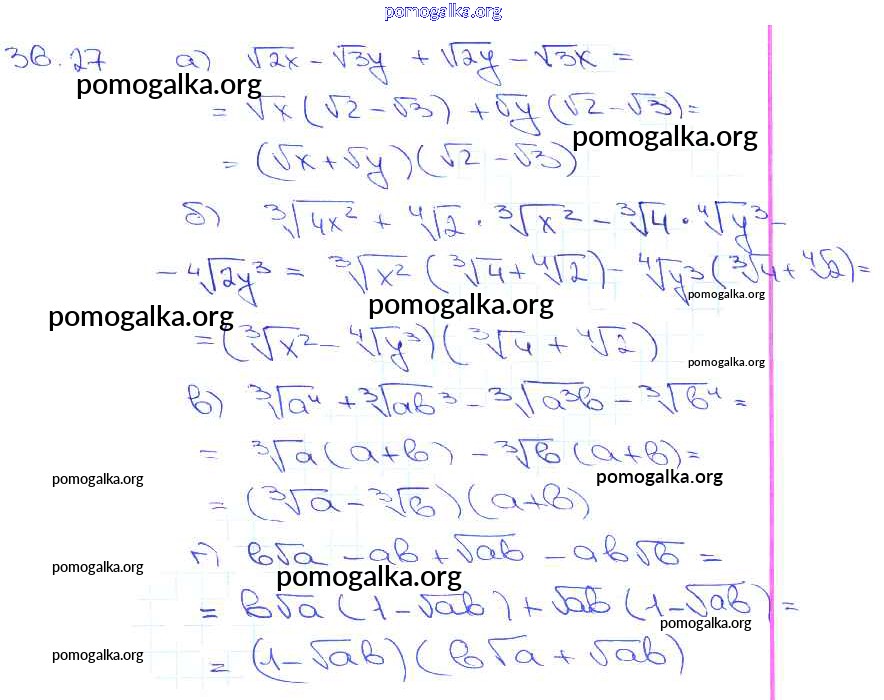 pomogalka.org
36.27 а) √2x - √3y + √2y - √3x =
pomogalka.org
= √x (√2 - √3) + √y (√2 - √3) =
pomogalka.org
= (√x + √y)(√2 - √3)
б) ³√4x² + ⁴√2 · ³√x² - ³√4 · ⁴√y³ -
- ⁴√2y³ = ³√x² (³√4 + ⁴√2) - ⁴√y³ (³√4 + ⁴√2) =
pomogalka.org
pomogalka.org
pomogalka.org
= (³√x² - ⁴√y³)(³√4 + ⁴√2)
pomogalka.org
в) ³√a⁴ + ³√ab³ - ³√a³b - ³√b⁴ =
= ³√a (a+b) - ³√b (a+b) =
pomogalka.org
pomogalka.org
= (³√a - ³√b)(a+b)
г) b√a - ab + √ab - ab√b =
pomogalka.org
pomogalka.org
= b√a (1 - √ab) + √ab (1 - √ab) =
pomogalka.org
= (1 - √ab)(b√a + √ab)
pomogalka.org